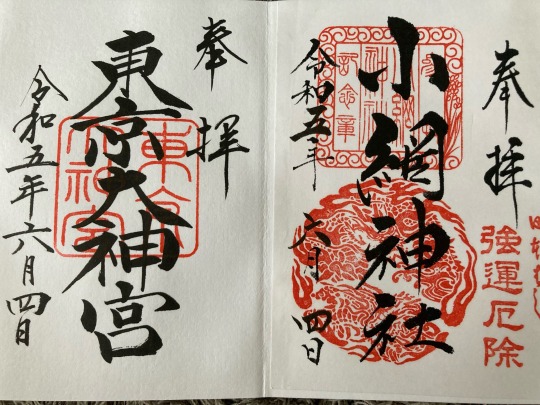 奉拝
小網神社
令和五年
六月四日
強運厄除
奉拝
東京大神宮
令和五年六月四日
東京大神宮